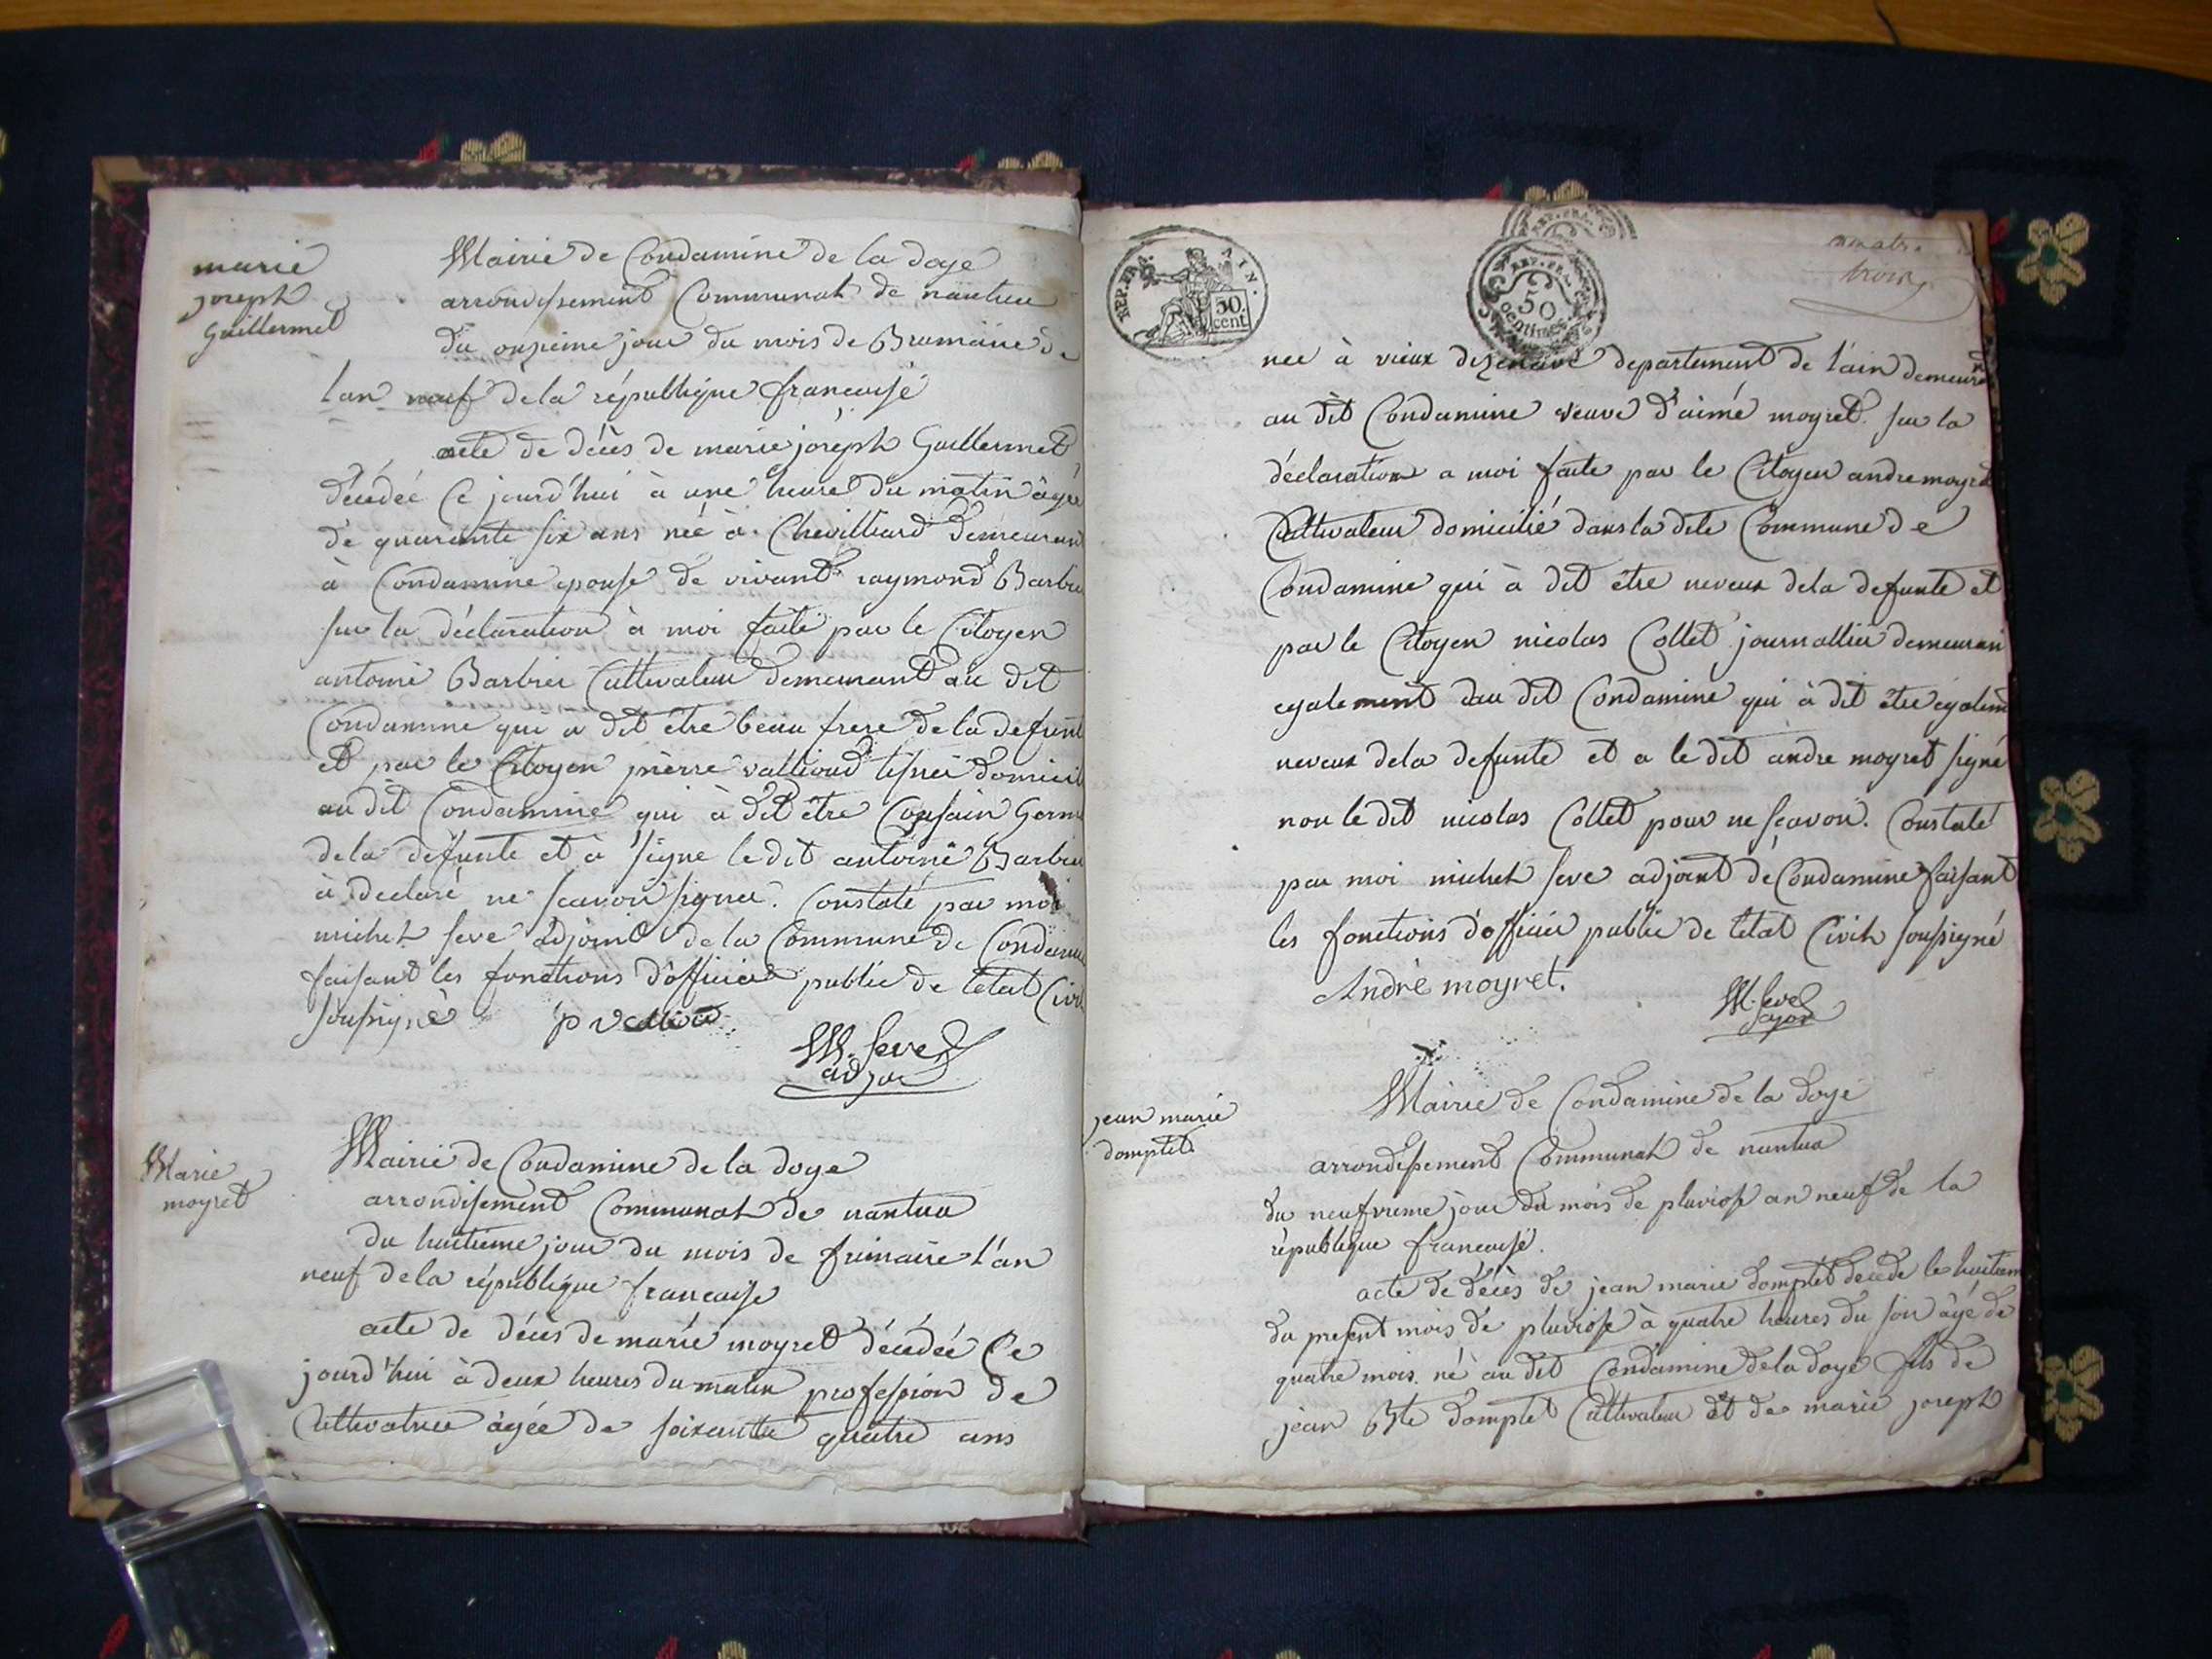 marie
joseph
Guillermet
Mairie de Condamine de la doye
arrondissement Communal de nantua
du onzieme jour du mois de Brumaire de
lan neuf de la république francaise
acte de décès de marie joséph Guillermet
décédée Ce jourd'hui à une heure du matin âgée
de quarente six ans née à Chevilliard demeurant
à Condamine epouse de vivant raymond Barbie
sur la déclaration à moi faite par le Citoyen
antoine Barbier Cultivateur demeurant au dit
Condamine qui a dit être beau frere de la defunt
et par le Citoyen pierre vallioud tisseï domicil
au dit Condamine qui à dit être Cousain Germ
de la défunte et à signe le dit antoine Barbie
à declaré ne scavoir signer. Constaté par moi
michel seve adjoint de la Commune de Condami
faisant les fonctions d'officier public de l'etat Civil
soussigné
M. seve
adjoi
Marie
moyret
Mairie de Condamine de la doye
arrondisement Communal de nantua
du huitieme jour du mois de frimaire l'an
neuf de la république francaise
acte de décès de marie moyret décédée Ce
jourd'hui à deux heures du matin profession de
Cultivatrice âgée de soixante quatre ans
REP. FRA. AIN.
50.
cent
REP. FRA.
50
centimes.
trois
nee à vieux dizenave departement de l'ain demeura
au dit Condamine veuve d'aimé moyret sur la
déclaration a moi faite par le Citoyen andre moyret
Cultivateur domicilié dans la dite Commune de
Condamine qui à dit être neveux de la defunte et
par le Citoyen nicolas Collet journallier demeuran
egalement au dit Condamine qui à dit être égalem
neveux de la defunte et a le dit andre moyret signé
non le dit nicolas Collet pour ne scavoir. Constaté
par moi michel seve adjoint de Condamine faisant
les fonctions d'officier public de l'etat Civil soussigné
André moyret.
M. seve
ajoi
jean marie
domptet
Mairie de Condamine de la doye
arrondissement Communal de nantua
du neufvieme jour du mois de pluviose an neuf de la
république francaise.
acte de décès de jean marie domptet decede le huitiem
du present mois de pluviose à quatre heures du soir âgé de
quatre mois né au dit Condamine de la doye fils de
jean Bte domptet Cultivateur et de marie joseph